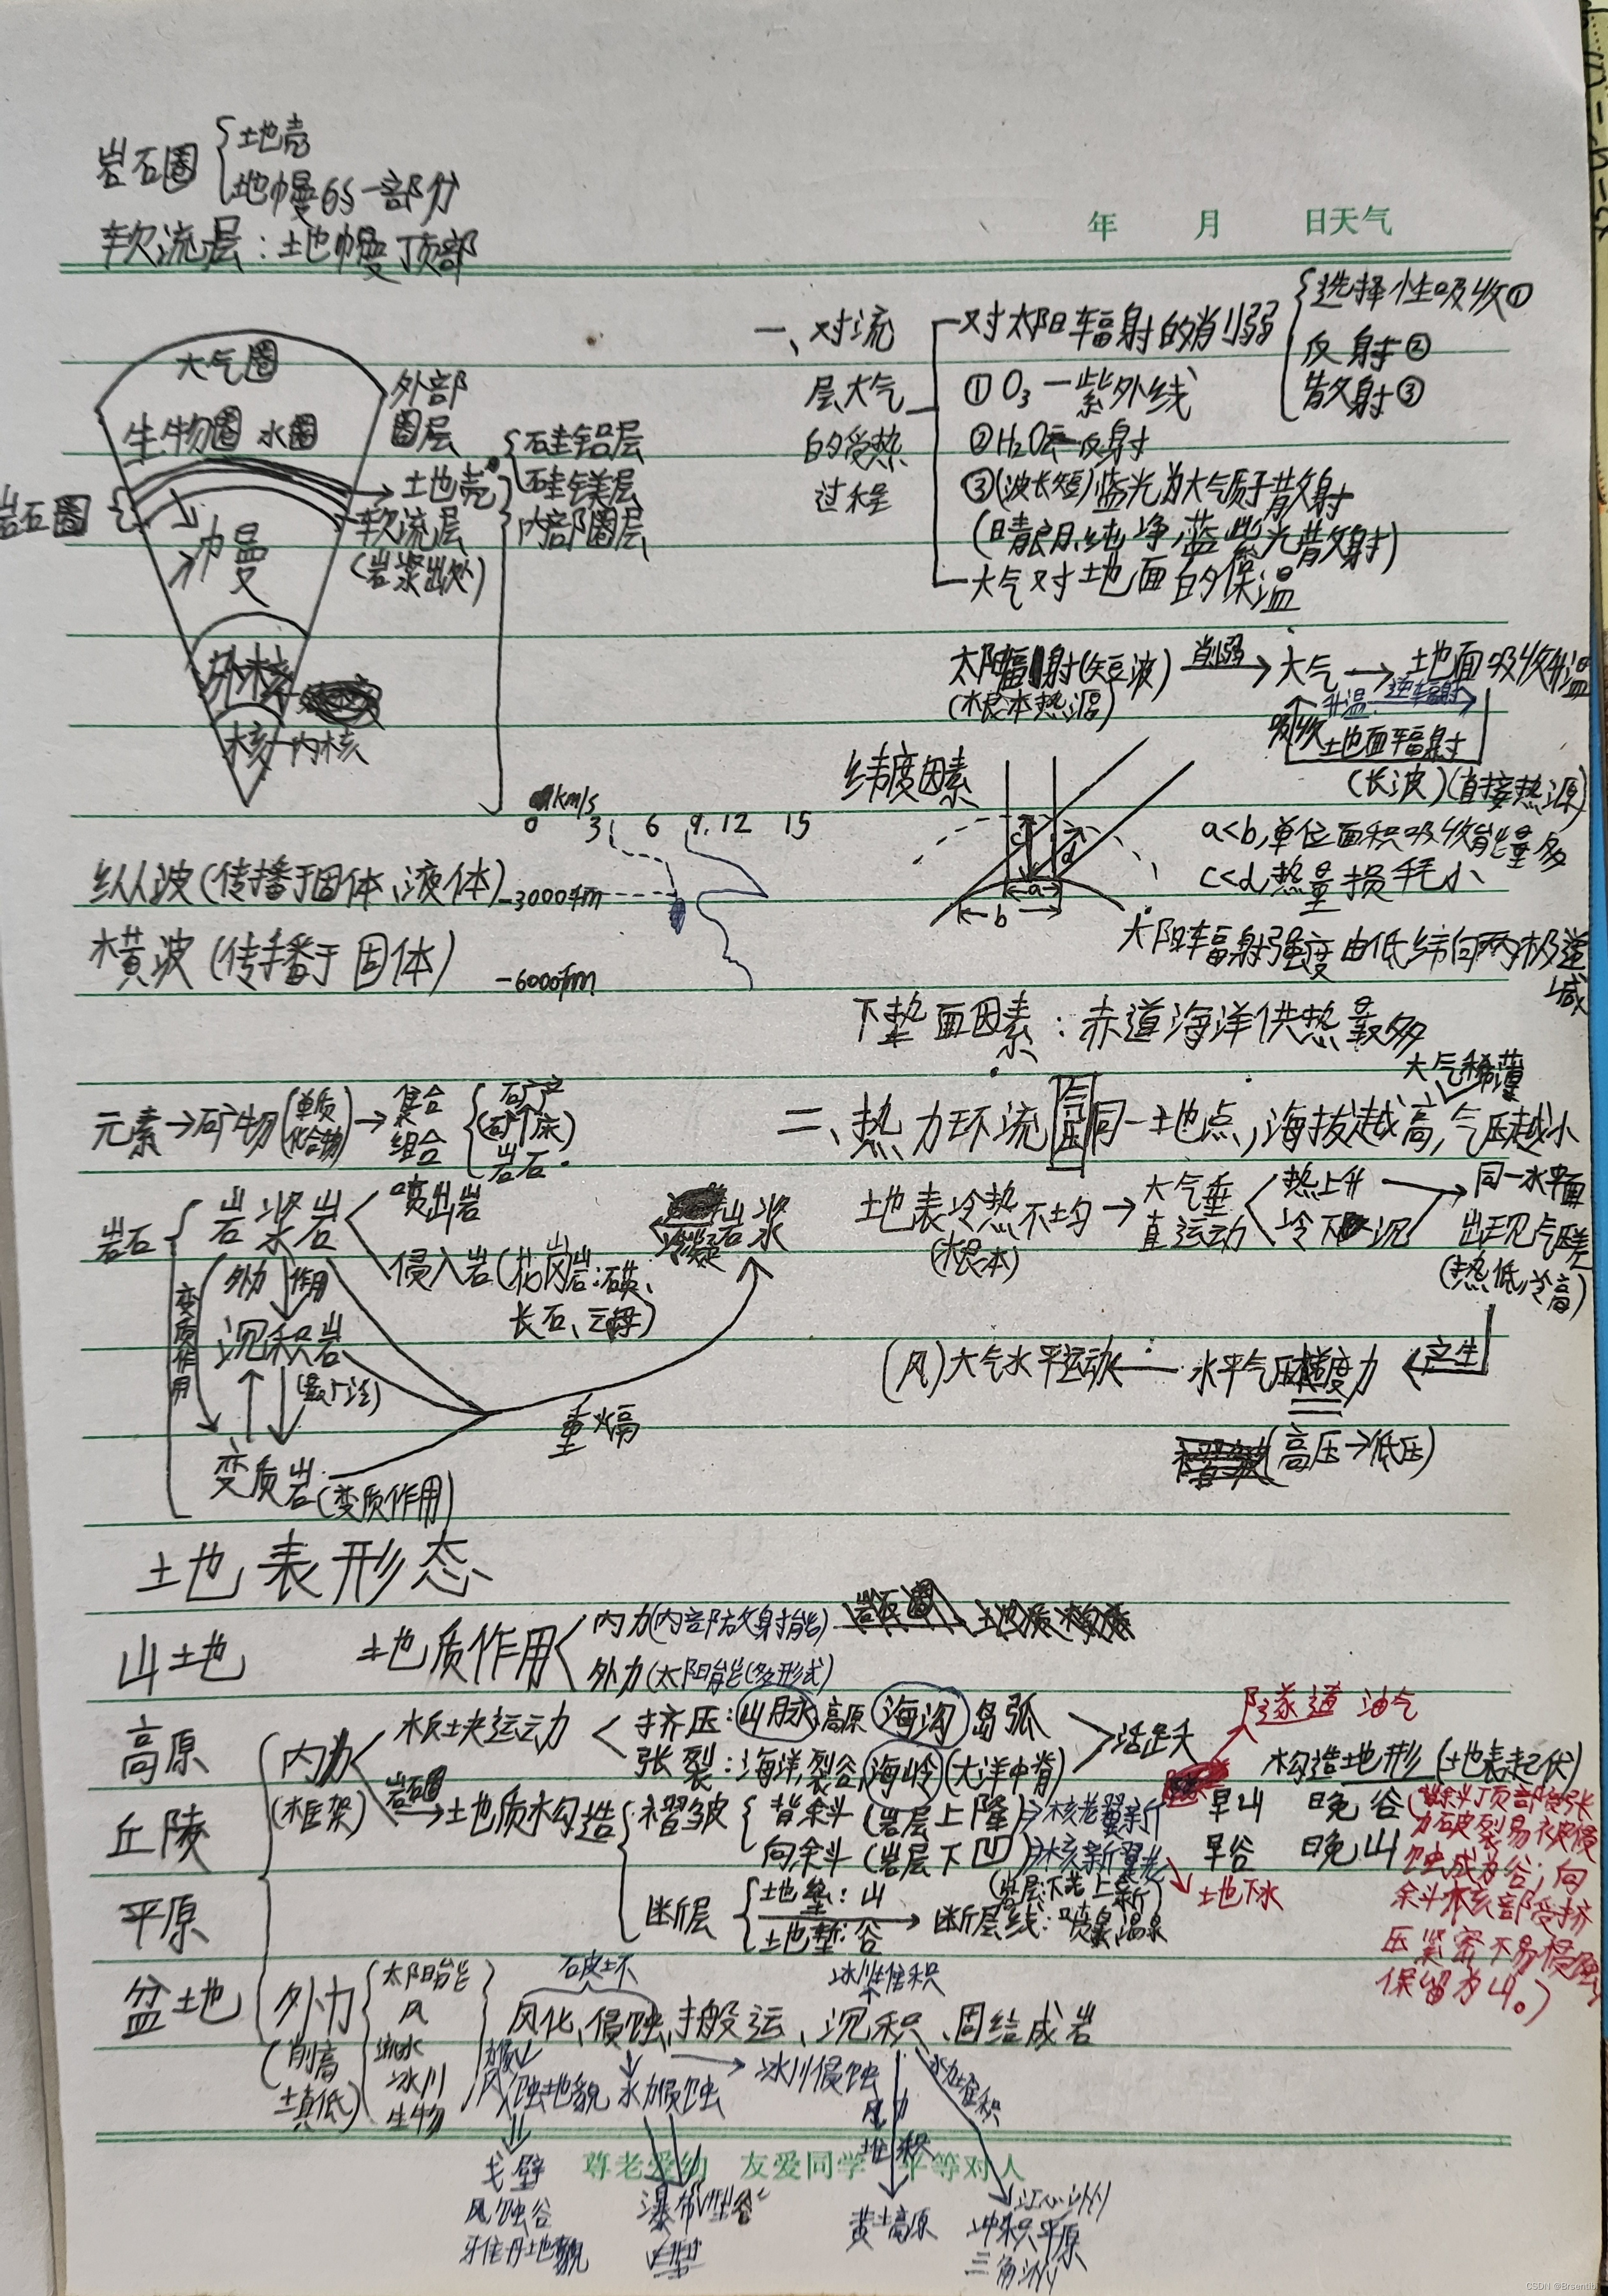 岩石圈 地壳
地幔的一部分
软流层：地幔顶部
年 月 日天气
大气圈
生物圈 水圈
外部
圈层
岩石圈
地壳
硅铝层
硅镁层
软流层
(岩浆出处)
内部圈层
地幔
外核
核 内核
km/s
0 3 6 9 12 15
纵波(传播于固体、液体)
-3000km
横波(传播于固体)
-6000km
元素→矿物(单质
化合物)→集合
组合
矿产
(矿床)
岩石
岩石
岩浆岩
喷出岩
侵入岩(花岗岩:石英、
长石、云母)
冷凝
岩浆
外力作用
变质作用
沉积岩
变质岩(变质作用)
重熔
一、对流
层大气
的受热
过程
对太阳辐射的削弱
选择性吸收①
反射②
散射③
① O₃—紫外线
②H₂O云—反射
③(波长短)蓝光为大气质子散射
(晴朗、纯净,蓝紫光散射)
大气对地面的保温
太阳辐射(短波) 削弱→大气→地面吸收升温
(根本热源)
升温 逆辐射
吸收 地面辐射
(长波)(直接热源)
纬度因素
c d
a
b
a<b,单位面积吸收能量多
c<d,热量损耗小
太阳辐射强度由低纬向两极递
减
下垫面因素：赤道海洋供热最多
大气稀薄
二、热力环流 气压 同一地点,海拔越高,气压越小
地表冷热不均→大气垂
直运动
(根本)
热上升
冷下沉
同一水平面
出现气压差
(热低,冷高)
产生
(风)大气水平运动←水平气压梯度力
(高压→低压)
地表形态
山地
高原
丘陵
平原
盆地
地质作用
内力(内部放射能)
外力(太阳能(多形式)
内力
(框架)
板块运动
挤压:山脉,高原 海沟 岛弧
张裂:海洋,裂谷,海岭(大洋中脊)
活跃
岩石圈
地质构造
褶皱
背斜(岩层上隆)核老翼新
向斜(岩层下凹)核新翼老
(岩层下老上新)
断层
地垒:山
地堑:谷
断层线:喷泉,温泉
隧道 油气
构造地形(地表起伏)
早山 晚谷
早谷 晚山
地下水
(背斜顶部受张
力破裂易被侵
蚀成为谷；向
斜核部受挤
压紧密不易侵蚀
保留为山。)
外力
(削高
填低)
太阳能
风
流水
冰川
生物
破坏
冰川堆积
风化、侵蚀、搬运、沉积、固结成岩
风蚀地貌
水力侵蚀
冰川侵蚀
风力
堆积
水力堆积
尊老爱幼 友爱同学 平等对人
戈壁
风蚀谷
牙佳丹地貌
瀑布"V"型谷
黄土高原
江心洲
冲积平原
三角洲
CSDN @Brsentibi